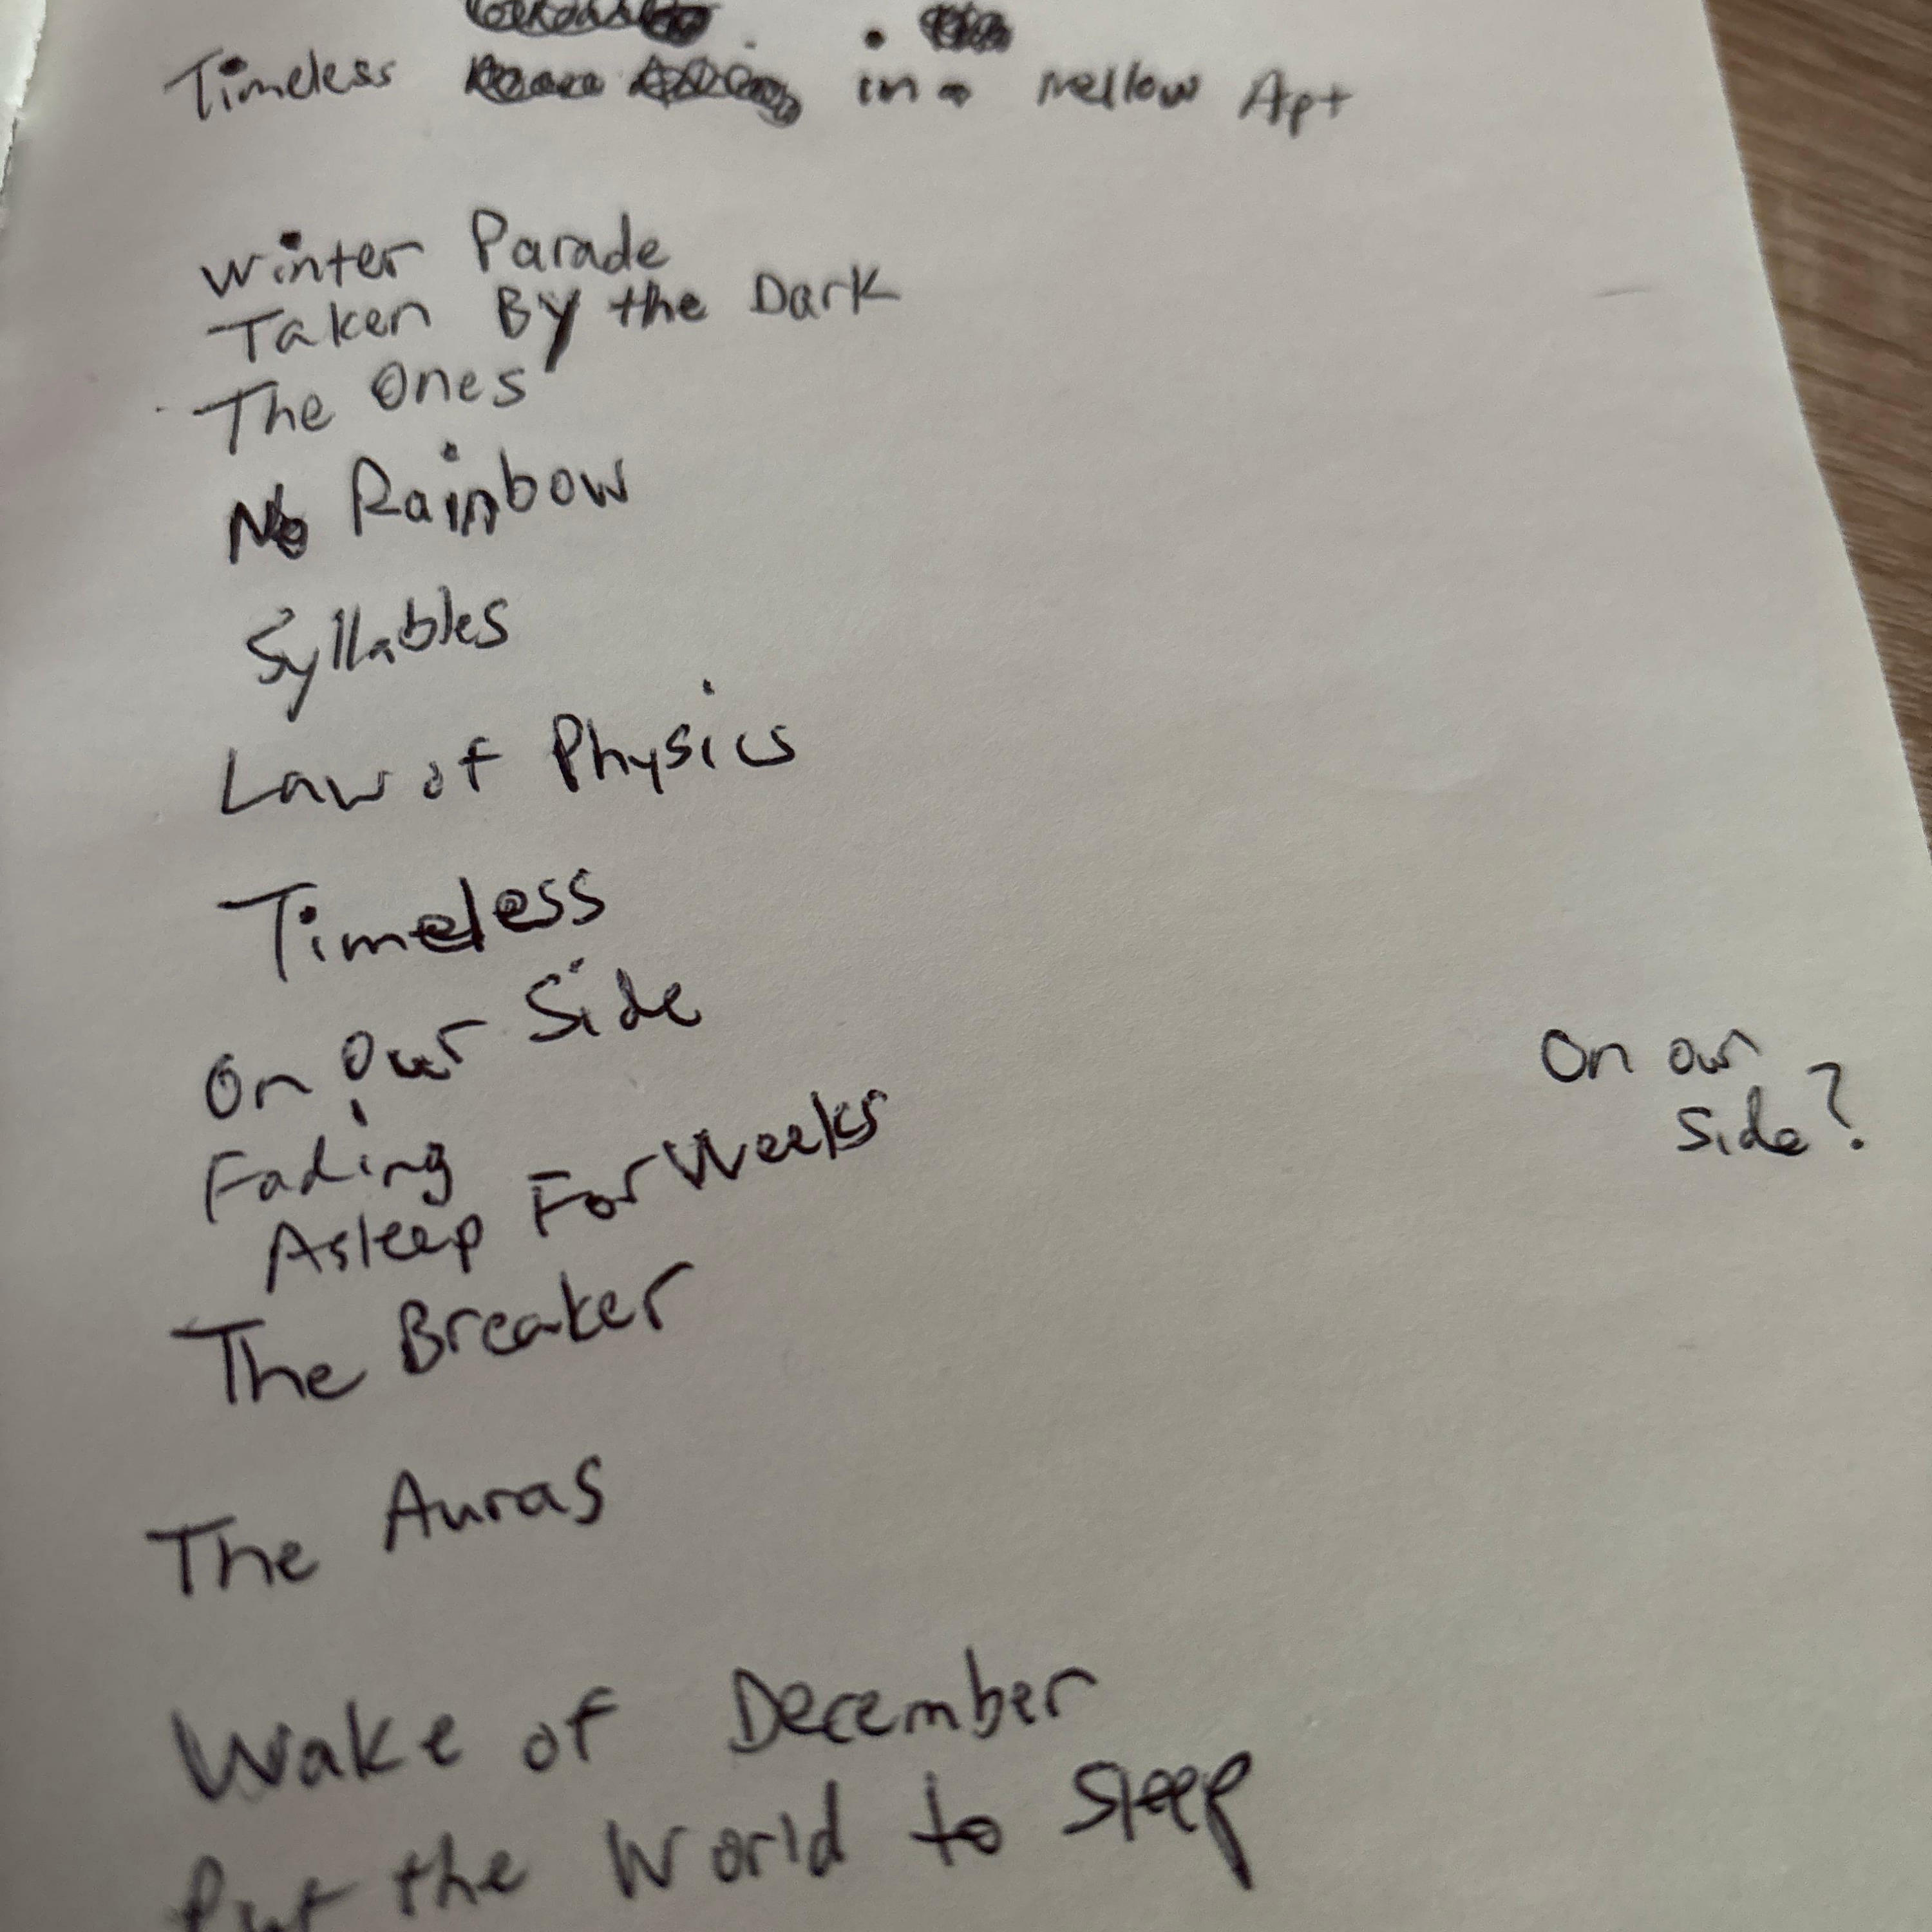 Timeless in a Mellow Apt
Winter Parade
Taken By the Dark
The Ones
No Rainbow
Syllables
Law of Physics
Timeless
On Our Side
On our
side?
Fading
Asleep For Weeks
The Breaker
The Auras
Wake of December
Put the World to Sleep